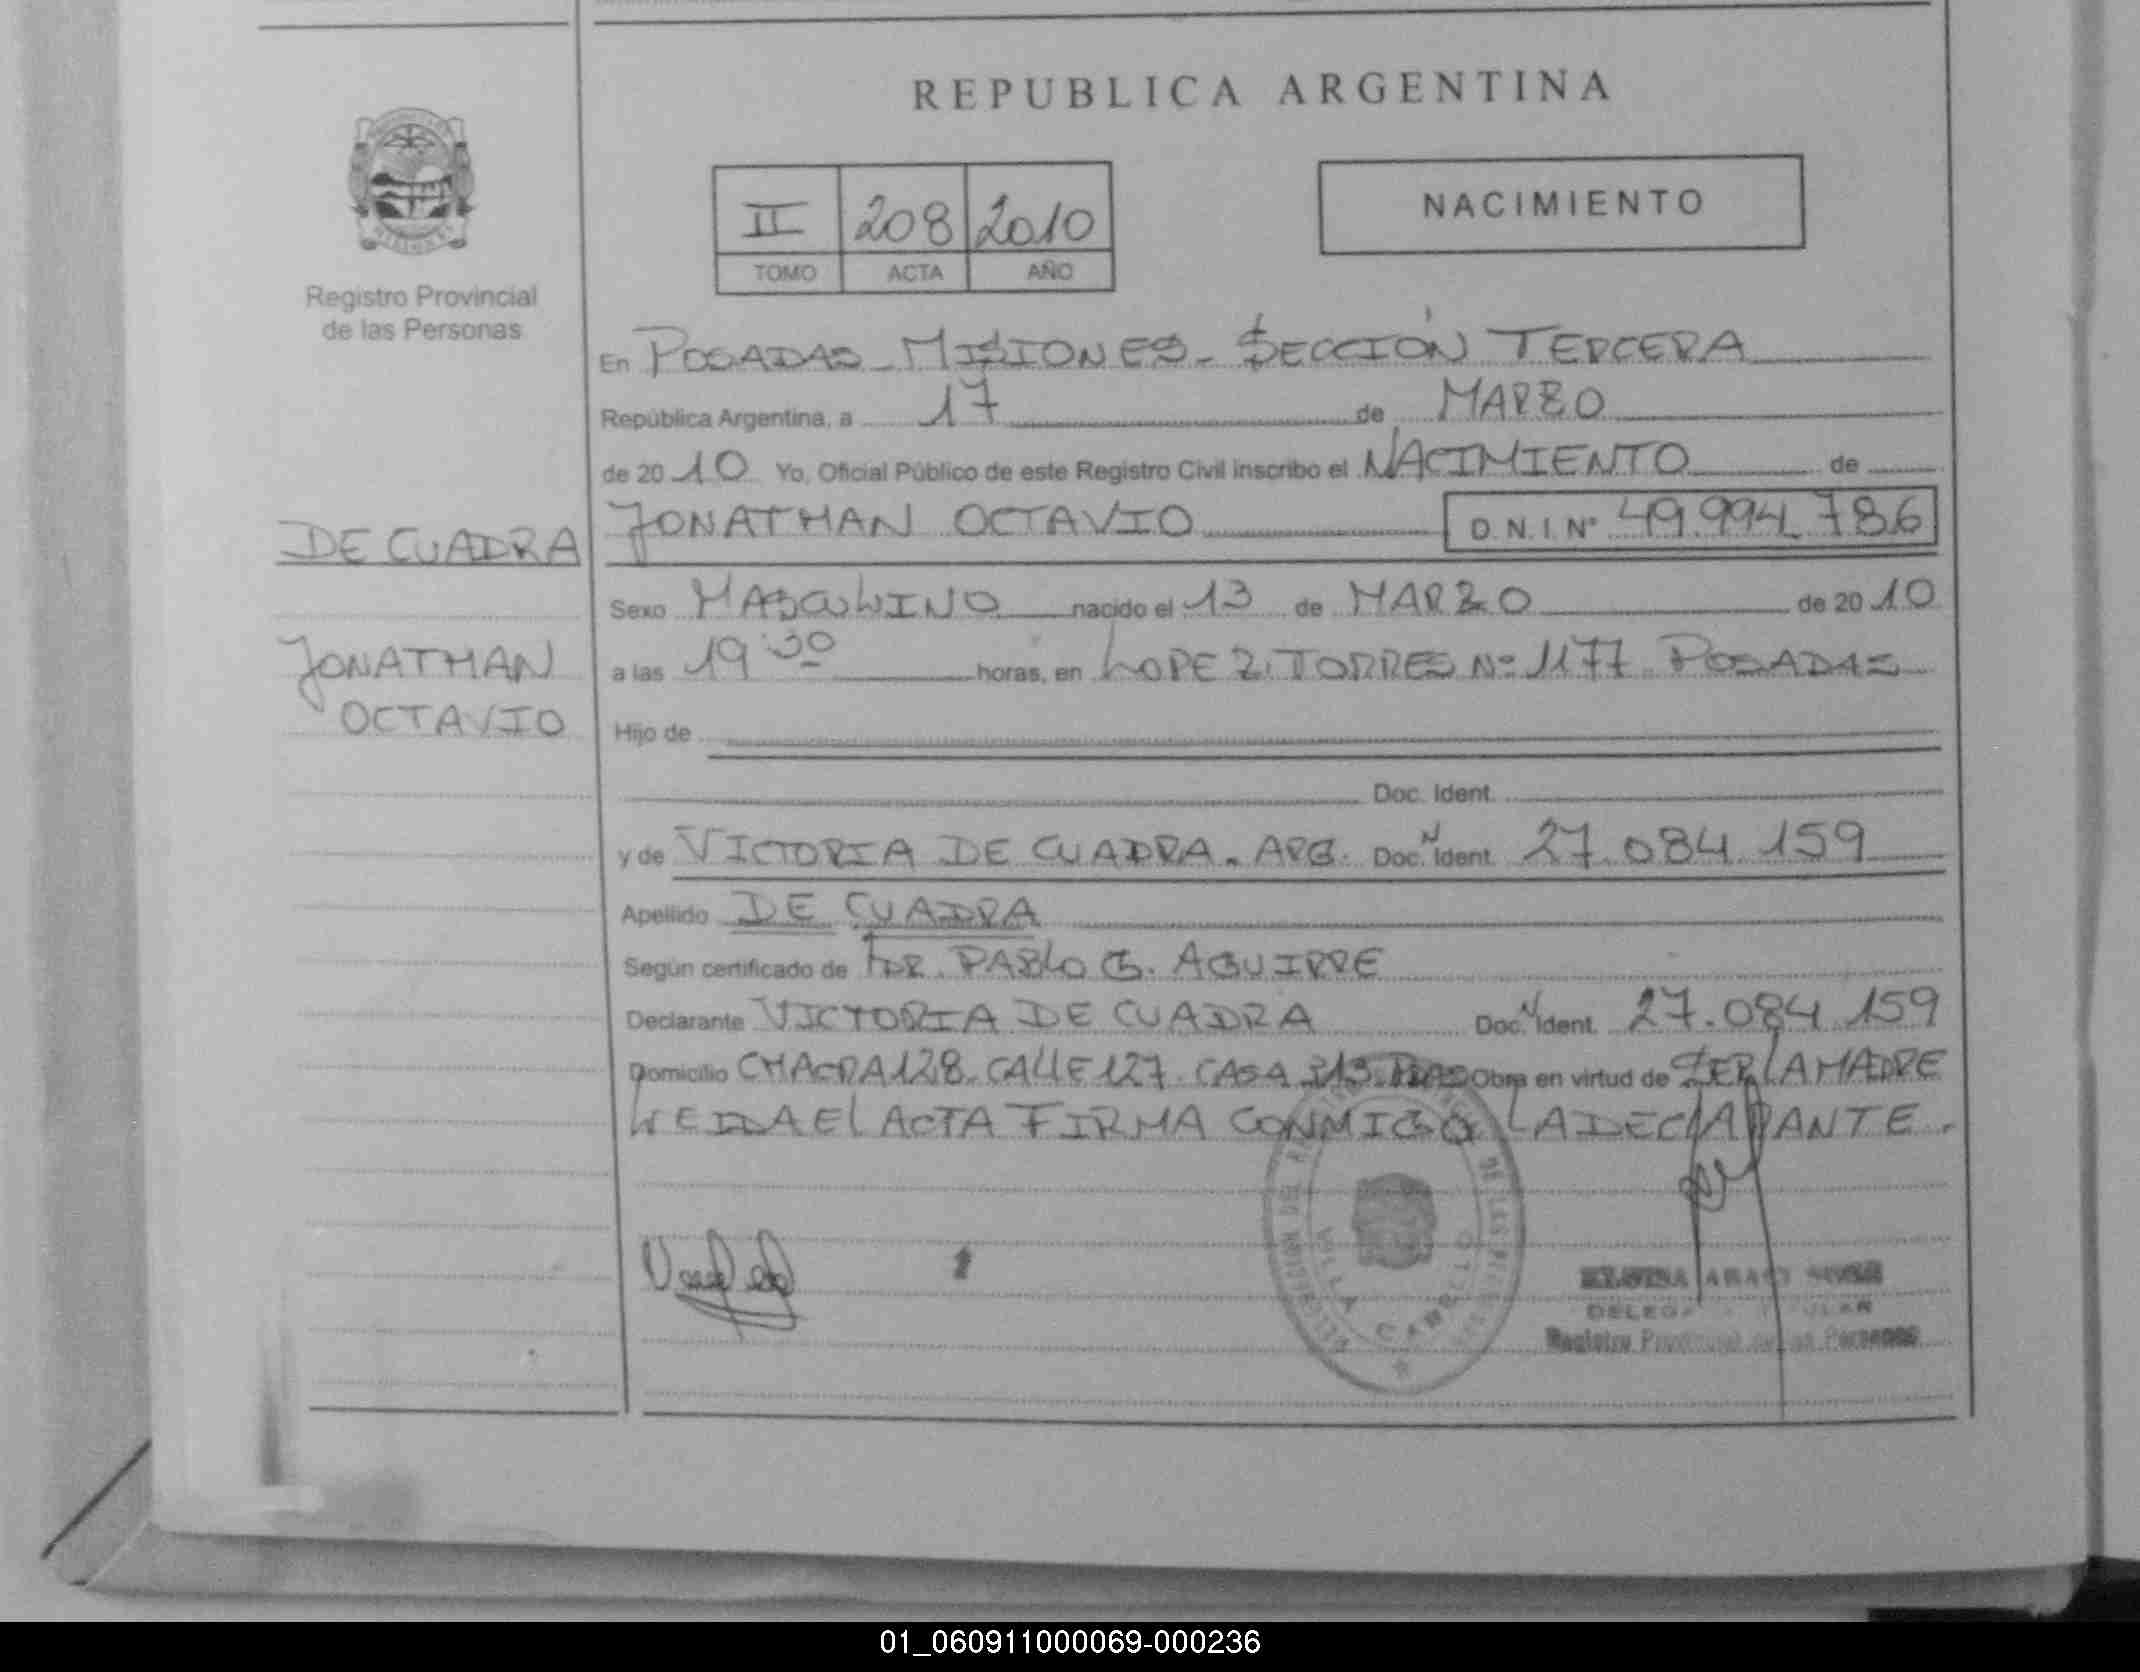 REPUBLICA ARGENTINA
II 208 2010
TOMO ACTA AÑO
NACIMIENTO
Registro Provincial
de las Personas
En POSADAS - MISIONES - SECCIÓN TERCERA
República Argentina, a 17 de MARZO
de 20 10 Yo, Oficial Público de este Registro Civil inscribo el NACIMIENTO de
DE CUADRA
JONATHAN OCTAVIO D.N.I. N° 49.994.786
Sexo MASCULINO nacido el 13 de MARZO de 20 10
JONATHAN
OCTAVIO
a las 19 30 horas, en LOPEZ TORRES Nº 1177 POSADAS
Hijo de
Doc. Ident.
y de VICTORIA DE CUADRA. ARG. Doc. N Ident. 27.084.159
Apellido DE CUADRA
Según certificado de DR. PABLO G. AGUIRRE
Declarante VICTORIA DE CUADRA Doc. N Ident. 27.084.159
Domicilio CHACRA 128. CALLE 127. CASA 313 Obra en virtud de SER LA MADRE
LEIDA EL ACTA FIRMA CONMIGO LA DECLARANTE.
VILLA CABELLO
Registro Provincial de las Personas
01_060911000069-000236